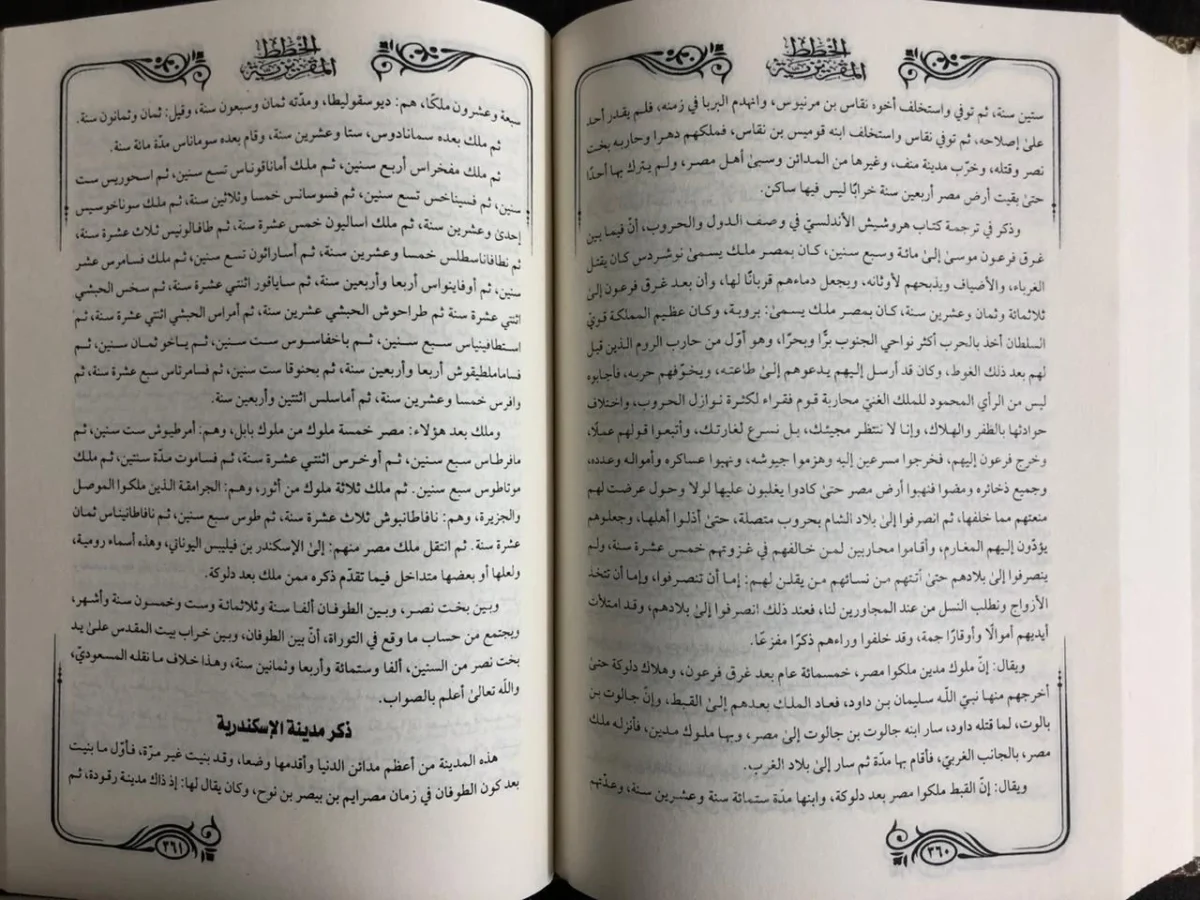 الخطط
المقريزية
ستين سنة، ثم توفي واستخلف أخوه نقاس بن مرنيوس، وانهدم البربا في زمنه، فلم يقدر أحد
علىٰ إصلاحه، ثم توفي نقاس واستخلف ابنه قوميس بن نقاس، فملكهم دهرا وحاربه بخت
نصر وقتله، وخرّب مدينة منف، وغيرها من المدائن وسبىٰ أهل مصر، ولم يترك بها أحدًا
حتىٰ بقيت أرض مصر أربعين سنة خرابًا ليس فيها ساكن.
وذكر في ترجمة كتاب هروشيش الأندلسيّ في وصف الدول والحروب، أنّ فيما بين
غرق فرعون موسىٰ إلىٰ مائة وسبع سنين، كان بمصر ملك يسمىٰ نوشردس كان يقتل
الغرباء، والأضياف ويذبحهم لأوثانه، ويجعل دماءهم قربانًا لها، وأن بعد غرق فرعون إلىٰ
ثلاثمائة وثمان وعشرين سنة، كان بمصر ملك يسمىٰ: بروبة، وكان عظيم المملكة قويّ
السلطان أخذ بالحرب أكثر نواحي الجنوب برًّا وبحرًا، وهو أوّل من حارب الروم الذين قيل
لهم بعد ذلك الغوط، وكان قد أرسل إليهم يدعوهم إلىٰ طاعته، ويخوّفهم حربه، فأجابوه
ليس من الرأي المحمود للملك الغنيّ محاربة قوم فقراء لكثرة نوازل الحروب، واختلاف
حوادثها بالظفر والهلاك، وإنا لا ننتظر مجيئك، بل نسرع لغارتك، وأتبعوا قولهم عملًا،
وخرج فرعون إليهم، فخرجوا مسرعين إليه وهزموا جيوشه، ونهبوا عساكره وأمواله وعدده،
وجميع ذخائره ومضوا فنهبوا أرض مصر حتىٰ كادوا يغلبون عليها لولا وحول عرضت لهم
منعتهم مما خلفها، ثم انصرفوا إلىٰ بلاد الشام بحروب متصلة، حتىٰ أذلوا أهلها، وجعلوهم
يؤدّون إليهم المغارم، وأقاموا محاربين لمن خالفهم في غزوتهم خمس عشرة سنة، ولم
ينصرفوا إلىٰ بلادهم حتىٰ أتتهم من نسائهم من يقلن لهم: إما أن تنصرفوا، وإما أن نتخذ
الأزواج ونطلب النسل من عند المجاورين لنا، فعند ذلك انصرفوا إلىٰ بلادهم، وقد امتلأت
أيديهم أموالًا وأوقارًا جمة، وقد خلفوا وراءهم ذكرًا مفزعًا.
ويقال: إنّ ملوك مدين ملكوا مصر، خمسمائة عام بعد غرق فرعون، وهلاك دلوكة حتىٰ
أخرجهم منها نبيّ اللّه سليمان بن داود، فعاد الملك بعدهم إلىٰ القبط، وإنّ جالوت بن
بالوت، لما قتله داود، سار ابنه جالوت بن جالوت إلىٰ مصر، وبها ملوك مدين، فأنزله ملك
مصر، بالجانب الغربيّ، فأقام بها مدّة ثم سار إلىٰ بلاد الغرب.
ويقال: إنّ القبط ملكوا مصر بعد دلوكة، وابنها مدّة ستمائة سنة وعشرين سنة، وعدّتهم
٣٦٠
الخطط
المقريزية
سبعة وعشرون ملكًا، هم: ديوسقوليطا، ومدّته ثمان وسبعون سنة، وقيل: ثمان وثمانون سنة.
ثم ملك بعده سمانادوس، ستا وعشرين سنة، وقام بعده سوماناس مدّة مائة سنة.
ثم ملك مفخراس أربع سنين، ثم ملك أماناقوناس تسع سنين، ثم اسحوريس ست
سنين، ثم فسيناخس تسع سنين، ثم فسوسانس خمسا وثلاثين سنة، ثم ملك سوناخوسيس
إحدىٰ وعشرين سنة، ثم ملك اساليون خمس عشرة سنة، ثم طافالونيس ثلاث عشرة سنة،
ثم نطافاناسطلس خمسا وعشرين سنة، ثم أساراثون تسع سنين، ثم ملك فسامرس عشر
سنين، ثم أوفاينواس أربعا وأربعين سنة، ثم ساياقور اثنتي عشرة سنة، ثم سخس الحبشي
اثنتي عشرة سنة ثم طراحوش الحبشي عشرين سنة، ثم أمراس الحبشي اثنتي عشرة سنة، ثم
استطافينياس سبع سنين، ثم باخفاسوس ست سنين، ثم ياخو ثمان سنين، ثم
فساماملطيقوش أربعا وأربعين سنة، ثم بحنوقا ست سنين، ثم فسامرتاس سبع عشرة سنة، ثم
وافرس خمسا وعشرين سنة، ثم أماسلس اثنتين وأربعين سنة.
وملك بعد هؤلاء: مصر خمسة ملوك من ملوك بابل، وهم: أمرطيوش ست سنين، ثم
مافرطاس سبع سنين، ثم أوخرس اثنتي عشرة سنة، ثم فساموت مدّة سنتين، ثم ملك
موتاطوس سبع سنين. ثم ملك ثلاثة ملوك من أثور، وهم: الجرامقة الذين ملكوا الموصل
والجزيرة، وهم: نافاطانبوش ثلاث عشرة سنة، ثم طوس سبع سنين، ثم نافاطانيناس ثمان
عشرة سنة. ثم انتقل ملك مصر منهم: إلىٰ الإسكندر بن فيليبس اليوناني، وهذه أسماء رومية،
ولعلها أو بعضها متداخل فيما تقدّم ذكره ممن ملك بعد دلوكة.
وبين بخت نصر، وبين الطوفان ألفا سنة وثلاثمائة وست وخمسون سنة وأشهر،
ويجتمع من حساب ما وقع في التوراة، أنّ بين الطوفان، وبين خراب بيت المقدس علىٰ يد
بخت نصر من السنين، ألفا وستمائة وأربعا وثمانين سنة، وهذا خلاف ما نقله المسعوديّ،
واللّه تعالىٰ أعلم بالصواب.
ذكر مدينة الإسكندرية
هذه المدينة من أعظم مدائن الدنيا وأقدمها وضعا، وقد بنيت غير مرّة، فأوّل ما بنيت
بعد كون الطوفان في زمان مصرايم بن بيصر بن نوح، وكان يقال لها: إذ ذاك مدينة رقودة، ثم
٣٦١